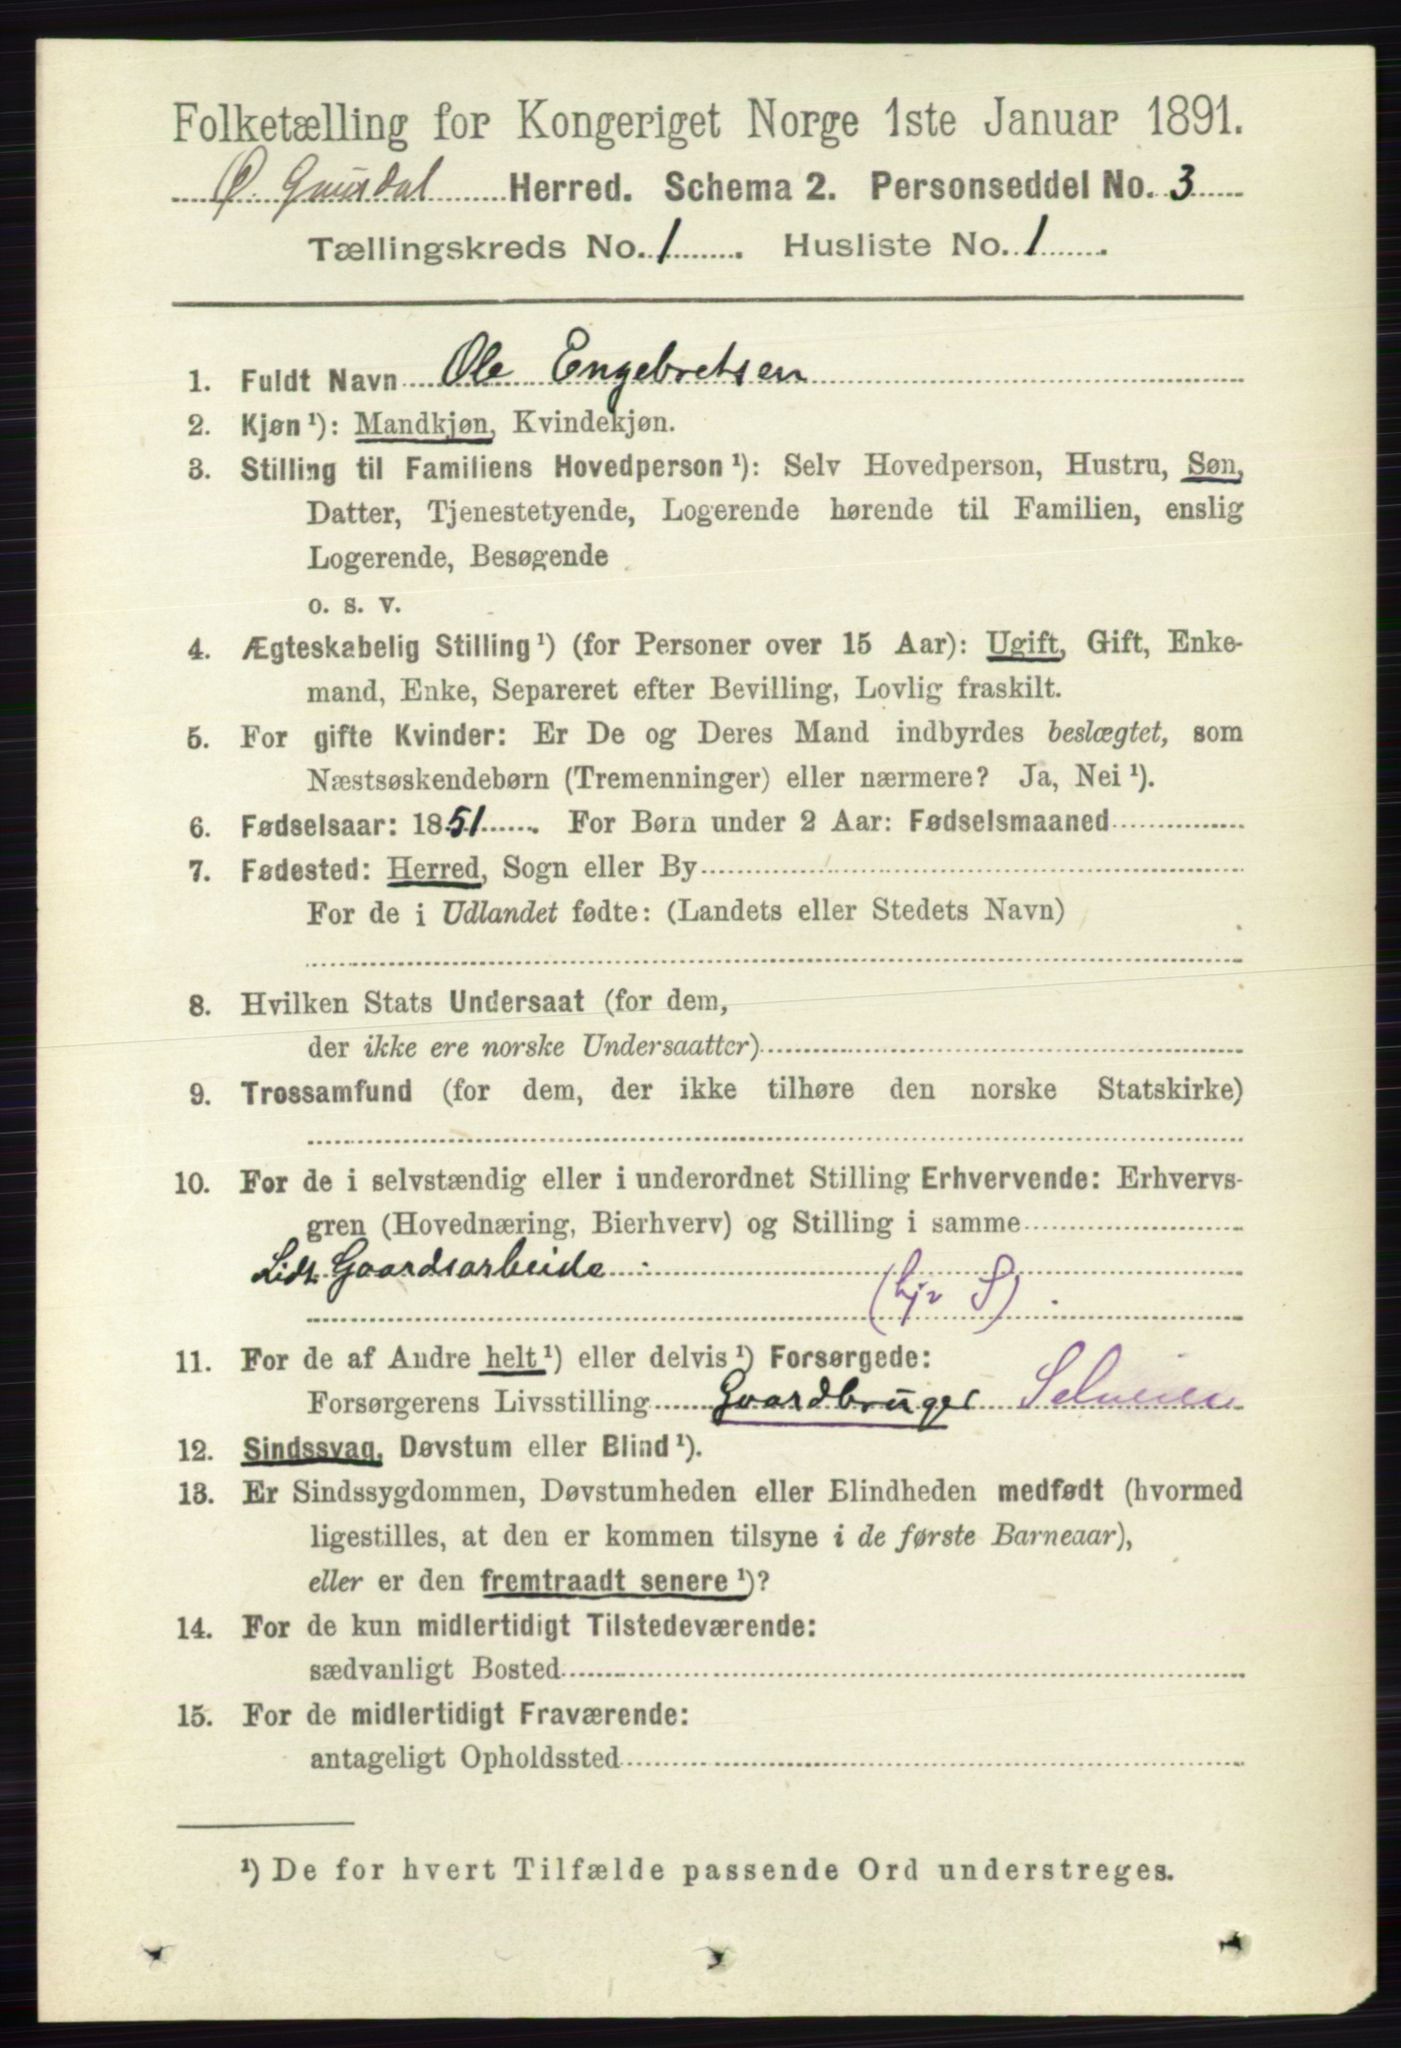 Folketælling for Kongeriget Norge 1ste Januar 1891.
Ø. Gausdal Herred. Schema 2. Personseddel No. 3
Tællingskreds No. 1. Husliste No. 1.
1. Fuldt Navn Ole Engebretsen
2. Kjøn¹): Mandkjøn, Kvindekjøn.
3. Stilling til Familiens Hovedperson¹): Selv Hovedperson, Hustru, Søn,
Datter, Tjenestetyende, Logerende hørende til Familien, enslig
Logerende, Besøgende
o. s. v.
4. Ægteskabelig Stilling¹) (for Personer over 15 Aar): Ugift, Gift, Enke-
mand, Enke, Separeret efter Bevilling, Lovlig fraskilt.
5. For gifte Kvinder: Er De og Deres Mand indbyrdes beslægtet, som
Næstsøskendebørn (Tremenninger) eller nærmere? Ja, Nei¹).
6. Fødselsaar: 1851. For Børn under 2 Aar: Fødselsmaaned
7. Fødested: Herred, Sogn eller By
For de i Udlandet fødte: (Landets eller Stedets Navn)
8. Hvilken Stats Undersaat (for dem,
der ikke ere norske Undersaatter)
9. Trossamfund (for dem, der ikke tilhøre den norske Statskirke)
10. For de i selvstændig eller i underordnet Stilling Erhvervende: Erhvervs-
gren (Hovednæring, Bierhverv) og Stilling i samme
Lidt Gaardsarbeide
(hjv S)
11. For de af Andre helt¹) eller delvis¹) Forsørgede:
Forsørgerens Livsstilling Gaardbruger Selveier
12. Sindssvag, Døvstum eller Blind¹).
13. Er Sindssygdommen, Døvstumheden eller Blindheden medfødt (hvormed
ligestilles, at den er kommen tilsyne i de første Barneaar),
eller er den fremtraadt senere¹)?
14. For de kun midlertidigt Tilstedeværende:
sædvanligt Bosted
15. For de midlertidigt Fraværende:
antageligt Opholdssted
¹) De for hvert Tilfælde passende Ord understreges.